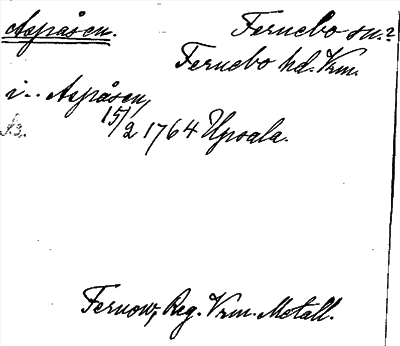 Aspåsen.
Fernebo sn.?
Fernebo hd. Vrm.
i - Aspåsen,
15/2 1764 Upsala.
Fernow, Reg. Vrm. Metall.